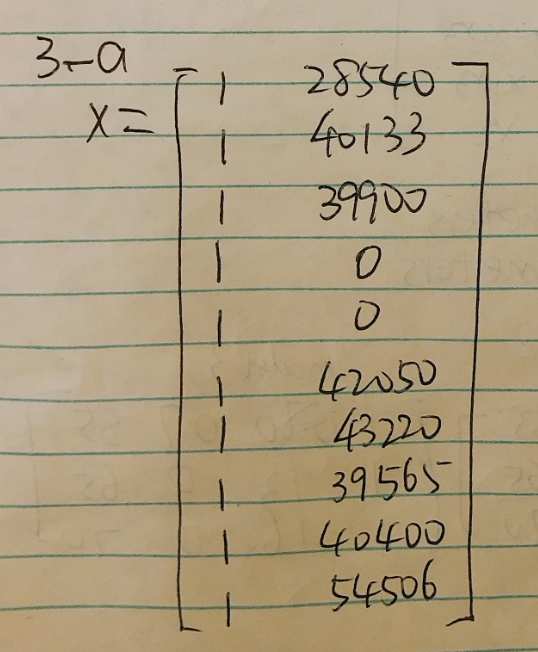 3-a
X = 1 28540
1 40133
1 39900
1 0
1 0
1 42050
1 43220
1 39565
1 40400
1 54506